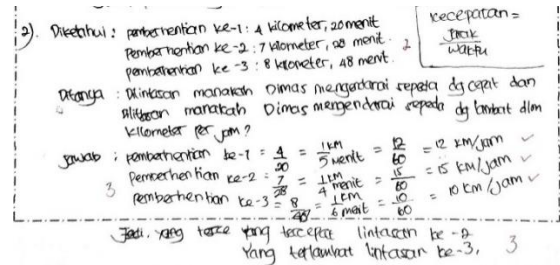 2). Diketahui : pemberhentian ke-1 : 4 kilometer, 20 menit
Pemberhentian ke-2 : 7 kilometer, 28 menit. 2
pemberhentian ke-3 : 8 kilometer, 48 menit.
kecepatan =
jarak
waktu
Ditanya : Dilintasan manakah Dimas mengendarai sepeda dg cepat dan
dilintasan manakah Dimas mengendarai sepeda dg lambat dlm
kilometer per jam ?
Jawab : pemberhentian ke-1 = 4/20 = 1 km/5 menit = 12/60 = 12 km/jam ✓
Pemberhentian ke-2 = 7/28 = 1 km/4 menit = 15/60 = 15 km/jam ✓
3 Pemberhentian ke-3 = 8/48 = 1 km/6 menit = 10/60 = 10 km/jam ✓
Jadi, yang yang tercepat lintasan ke-2
Yang terlambat lintasan ke-3, 3